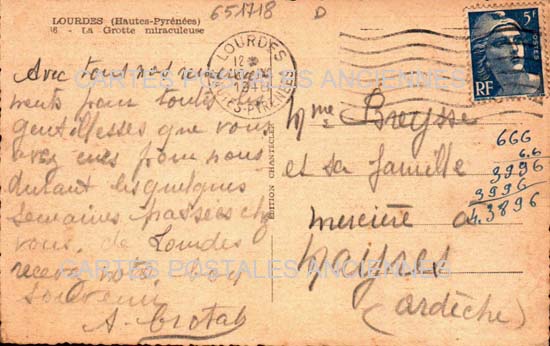 LOURDES (Hautes-Pyrénées)
La Grotte miraculeuse
651718
D
LOURDES
12
PYRENEES
5F
POSTES
RF
CARTES POSTALES ANCIENNES
Avec tous nos remercie
ments pour toutes
gentillesses que vous
avez eues pour nous
durant les quelques
semaines passées chez
vous. de Lourdes
recevez nos bon
souvenir
EDITION CHANTECLER
Mme Breysse
et sa famille
mercière a
(Ardèche)
666
6.6
3996
3996
4.3896
CARTES POSTALES ANCIENNES